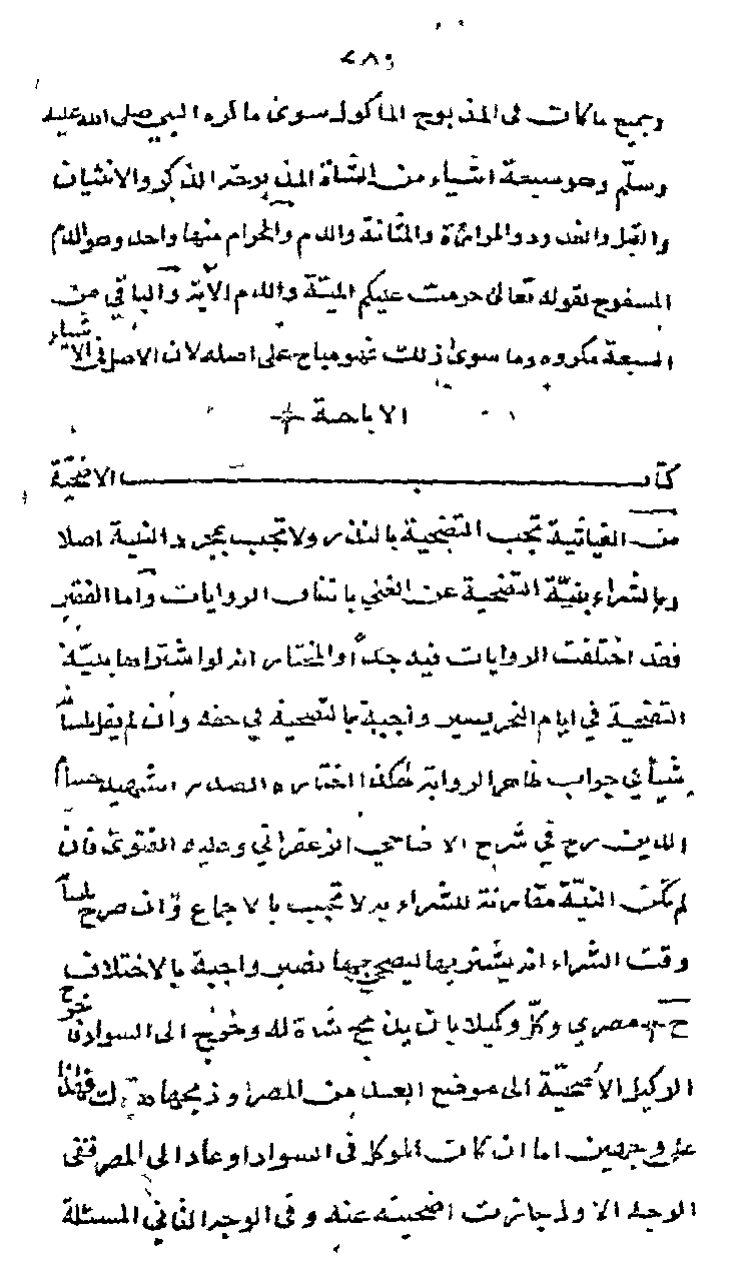 ٢٨٩
وجميع ما كان في المذبوح المأكول سوى ما كره النبي صلى الله عليه
وسلم وهو سبعة اشياء من الشاة المذبوحة الذكر والانثيان
والقبل والغدود والمرارة والمثانة والدم والحرام منها واحد وهو الدم
المسفوح لقوله تعالى حرمت عليكم الميتة والدم الآية والباقي من
السبعة مكروه وما سوى ذلك فهو مباح على اصله لان الاصل في الاشياء
الاباحة
كتاب الاضحية
من الغياثية تجب التضحية بالنذر ولا تجب بمجرد النية اصلا
وبالشراء بنية التضحية عن الغني باتفاق الروايات وأما الفقير
فقد اختلفت الروايات فيه جداً والمختار انه لو اشتراها بنية
التضحية في ايام النحر يصير واجبة بالتضحية في حقه وأن لم يقل بلسانه
شيأ في جواب ظاهر الرواية هكذا اختاره الصدر الشهيد حسام
الدين رح في شرح الاضاحي الزعفراني وعليه الفتوى فان
لم تكن النية مقارنة للشراء به لا تجب بالاجماع وان صرح بلسانه
وقت الشراء انه يشتريها ليضحي بها تصير واجبة بالاختلاف
مصري وكل وكيلا بان يذبح شاة له وخرج الى السواد فاخرج
الوكيل الأضحية الى موضع ابعد من المصر وذبحها هناك فهذا
على وجهين اما ان كان الموكل في السواد او عاد الى المصر ففي
الوجه الاول جازت اضحيته عنه وفي الوجه الثاني المسئلة